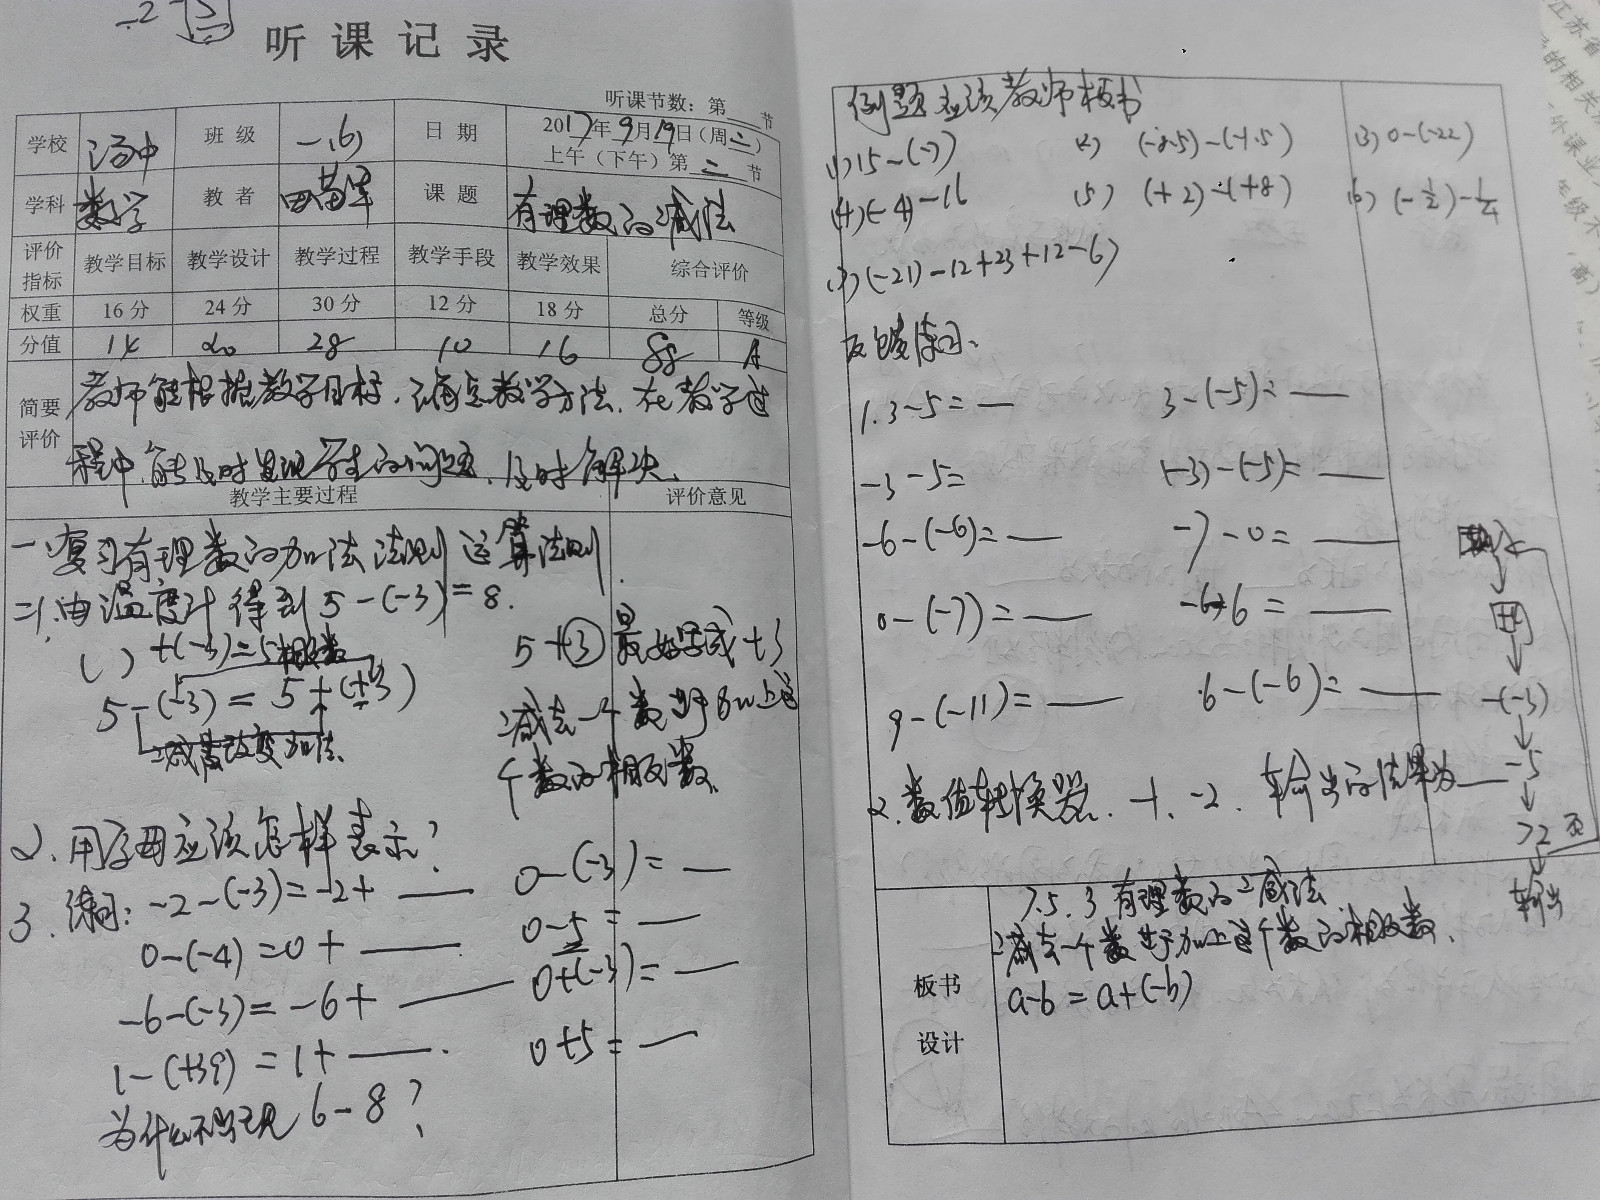 听课记录
听课节数：第 节
学校 汤中 班级 一(6) 日期 2017年9月19日（周二）
上午（下午）第二节
学科 数学 教者 课题 有理数的减法
评价指标 教学目标 教学设计 教学过程 教学手段 教学效果 综合评价
权重 16分 24分 30分 12分 18分 总分 等级
分值 14 20 28 10 16 88 A
简要评价 教师能根据教学目标、确定教学方法、在教学过
程中、能及时发现学生的问题、及时解决、
教学主要过程 评价意见
一、复习有理数的加法法则 运算法则
二、1.由温度计得到 5-(-3)=8.
( )+(-3)=5 相反数
5-(-3)=5+(+3)
减号改变加法
5+③ 最好写成+3
减去一个数等于加上这
个数的相反数、
2、用字母应该怎样表示？
3、练习：-2-(-3)=-2+ ___ 0-(-3)=___
0-(-4)=0+ ___ 0-5=___
-6-(-3)=-6+ ___ 0+(-3)=___
1-(+39)=1+ ___ 0+5=___
为什么不出现 6-8？
例题应该教师板书
(1) 15-(-7) (2) (-8.5)-(-1.5) (3) 0-(-22)
(4) (-4)-16 (5) (+2)-(+8) (6) (-1/2)-1/4
(7) (-21)-12+23+12-6
反馈练习、
1. 3-5=___ 3-(-5)=___
-3-5= (-3)-(-5)=___
-6-(-6)=___ -7-0=___
0-(-7)=___ -6+6=___
9-(-11)=___ 6-(-6)=___
2、数值转换器、-1、-2、输出的结果为___
-(-3)
-5
>2 否
输出
板书设计
7.5.3 有理数的减法
减去一个数等于加上这个数的相反数、
a-b=a+(-b)